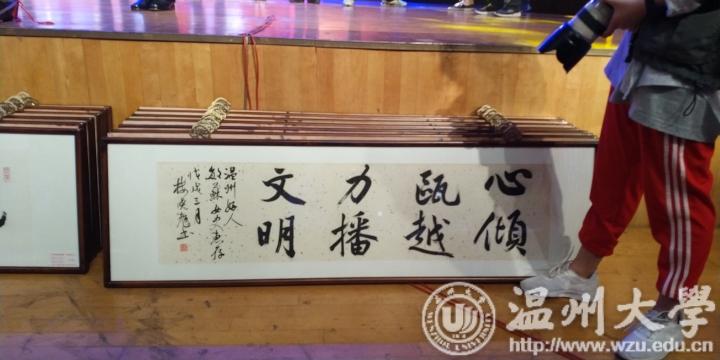 心傾
甌越
力播
文明
温州好人
蘇女士惠存
戊戌三月
温州大學
http://www.wzu.edu.cn
WENZHOU UNIVERSITY